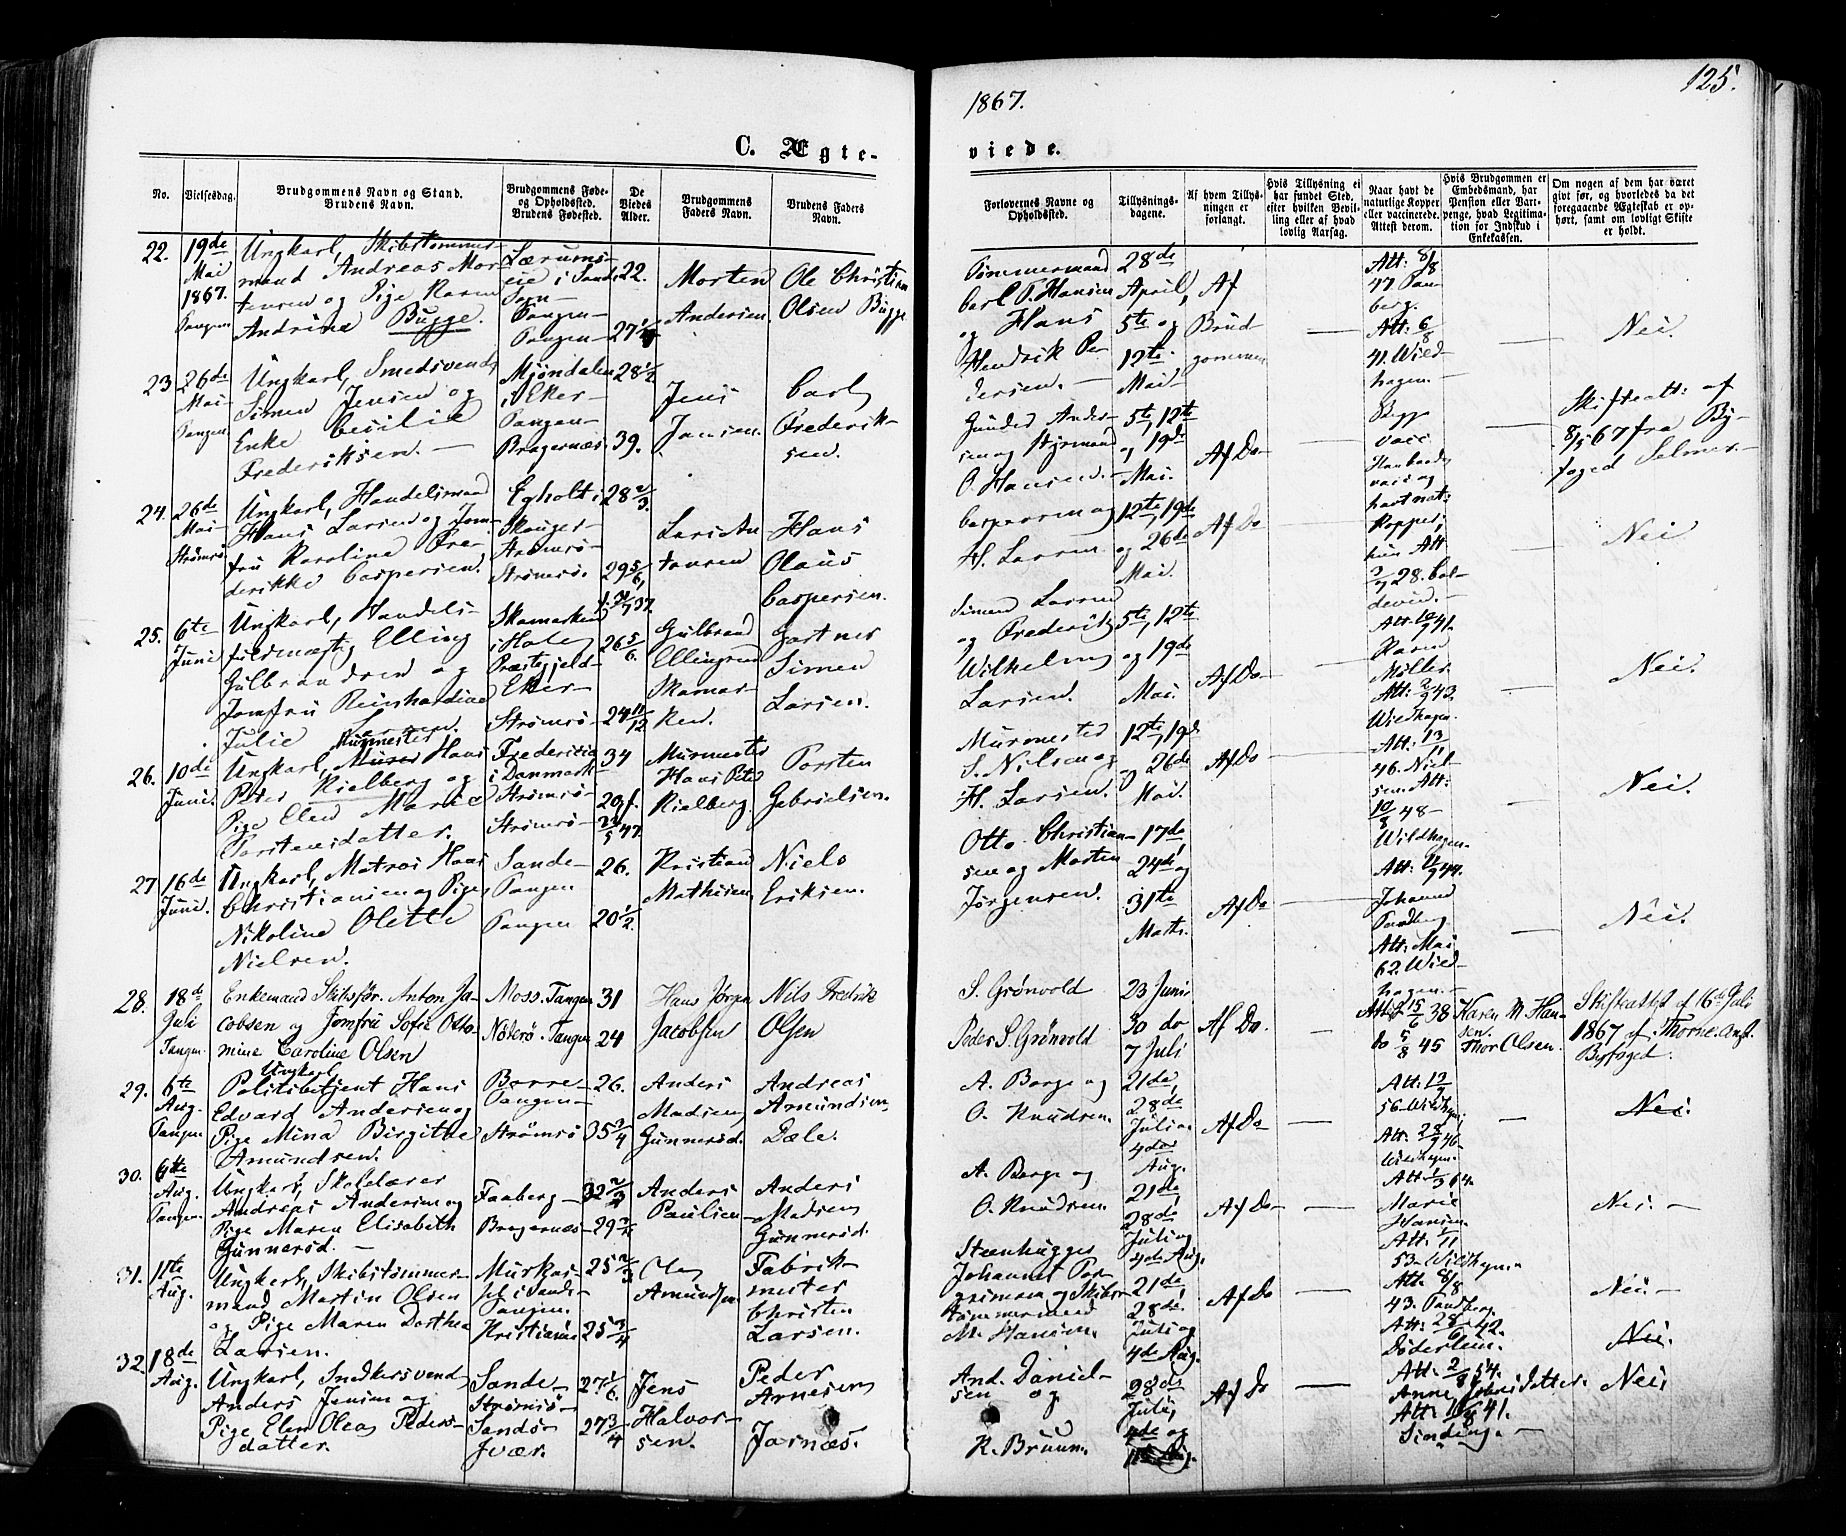 125.
1867.
C. Ægte-
viede.
No.
Vielsesdag.
Brudgommens Navn og Stand.
Brudens Navn.
Brudgommens Føde-
og Opholdssted.
Brudens Fødested.
De
Viedes
Alder.
Brudgommens
Faders Navn.
Brudens Faders
Navn.
Forlovernes Navne og
Opholdssted.
Tillysnings-
dagene.
Af hvem Tillys-
ningen er
forlangt.
Hvis Tillysning ei
har fundet Sted,
efter hvilken Bevil-
ling eller af hvad
lovlig Aarsag.
Naar havt de
naturlige Kopper
eller vaccinerede.
Attest derom.
Hvis Brudgommen er
Embedsmand, har
Pension eller Vart-
penge, hvad Legitima-
tion for Indskud i
Enkekassen.
Om nogen af dem har været
gift før, og hvorledes da det
foregaaende Ægteskab er op-
hørt, samt om lovligt Skifte
er holdt.
22.
19de
Mai
1867.
Tangen
Ungkarl, Skibstømmer-
mand Andreas Mor-
tensen og Pige Karen
Andrina Bugge.
Lærums-
eie i Sande
Tangen-
Tangen-
22.
27 1/4
Morten
Andersen.
Ole Christian
Olsen Bugge
Tømmermand
Carl P. Hansen
og Hans
Hendrik Pe-
dersen. -
28de
April,
5te og
12te
Mai-
Af
Brud
gommen
Att: 8/8
47 Tan
berg.
Att: 6/8
41. Wild-
hagen. -
Nei.
23
26de
Mai-
Tangen
Ungkarl, Smedsvend
Simen Jensen og
Enke Cecilie
Frederiksen. -
Mjøndalen
i Eker-
Tangen-
Bragernæs.
28 1/2
39.
Jens
Jansen.
Carl
Frederik-
sen.
Gunder Ander-
sen og Styrmand
O. Hansen. -
5te, 12te
og 19de
Mai.
Af Do-
Begge
vacc
Skifteatt: af
8/5 67 fra By-
foged Selmer. -
24.
26de
Mai-
Strømsø
Ungkarl, Handelsmand
Hans Larsen og Jom-
fru Karoline Fre-
derikke Caspersen.
Egholt i
Skouger-
Strømsø-
Strømsø.
28 2/3.
29 5/6,
Lars An
tonsen
Hans
Olaus
Caspersen.
Caspersen og
H. Larsen.
12te, 19de
og 26de
Mai.
Af Do
havt nat:
Kopper,
hun Att
28. Cal-
Nei
25.
6te
Juni
Ungkarl, Handels-
fuldmægtig Elling
Gulbrandsen og
Jomfru Reinhardine
Julie Larsen.
Skamarken
i Hole
Præstegjeld-
Eker-
Strømsø-
26 5/6.
24 11/12
Gulbrand
Ellingsen
Skamar-
ken.
Gartner
Simen
Larsen.
Simen Larsen
og Frederik
Wilhelm
Larsen.
5te, 12te
og 19de
Mai.
Af Do-
Att: 10/9 41.
Karen
Møller.
Att: 2/9 43.
Wildhagen.
Nei.
26.
10de
Juni.
Ungkarl, Murmester Hans
Peter Kielberg og
Pige Elen Marie
Torstensdatter.
Fredericia
i Danmark-
Strømsø-
Strømsø-
34
20 f.
23/5 47.
Murmester
Hans Peter
Kielberg.
Torsten
Gabrielsen.
Murmester
S. Nielsen og
H. Larsen.
12te, 19de
og 26de
Mai.
Af Do
Att: 13/11
46. Niel-
sen. Att:
10/8 48-
Wildhagen.
Nei.
27
16de
Juni.
Ungkarl, Matros Hans
Christiansen og Pige
Nikoline Olette
Nielsen.
Sande-
Tangen
Tangen
26.
20 1/2.
Kristian
Mathisen.
Niels
Eriksen.
Otto Christian-
sen og Morten
Jørgensen.
17de
24de og
31te
Marts.
Af Do
Johanne
Tandberg
Att: Mai
62. Wild-
hagen. -
Nei.
28.
18de
Juli
Tangen
Enkemand Skibsfør. Anton Ja-
cobsen og Jomfru Sofie Otto-
mine Caroline Olsen
Moss. Tangen
Nøterø. Tangen
31
24
Hans Jørgen
Jacobsen
Nils Fredrik
Olsen
S. Grønvold
Peder S. Grønvold
23 Juni
30 do
7 Juli
Af Do.
Att: 15/6 38
do 5/8 45
Karen M. Han-
sen.
Thor Olsen.
Skifteattest af 16de Juli
1867 af Thorne. Const.
Byfoged.
29.
6te
Aug.
Tangen
Ungkarl
Politibetjent Hans
Edvard Andersen og
Pige Mina Birgitte
Amundsen.
Borre-
Tangen-
Strømsø
26.
35 3/4
Anders
Madsen
Gunnersd.
Andreas
Amundsen
Dæle.
A. Borge og
O. Knudsen.
21de,
28de
Juli og
4de
Aug.
Af Do
Att: 12/7
56-Wildhagen
Att: 28/9 46-
Wildhagen.
Nei.
30.
6te
Aug.
Tangen.
Ungkarl, Skolelærer
Andreas Andersen og
Pige Maren Elisabeth
Gunnersd. -
Faaberg-
Bragernæs-
32 2/3
Anders
Paulsen-
Anders
Madsen
Gunnersd.
A. Borge og
O. Knudsen.
21de,
28de
Juli og
4de Aug.
Af Do-
Marie
Hansen.
53-Wildhagen
Nei. -
31.
11te
Aug.
Ungkarl, Skibstømmer-
mand Martin Olsen
og Pige Maren Dorthea
Larsen.
Tangen.
Kristiania
25 2/3
25 3/4
Ole
Amundsen
Fabrik-
mester
Christen
Larsen.
Steenhugger
tømmermand
M. Hansen.
21de
28de
Juli og
4de Aug.
Af Do
Att. 8/8
43. Tandberg.
Døderlein.
Nei. -
Nei.
32.
18de
Aug.
Ungkarl, Snedkersvend
Anders Jensen og
Pige Elen Olea Peders-
datter.
Sande-
Strømsø-
Sands-
vær.
27 1/6
27 3/4
Jens
Halvor-
sen.
Peder
Arnesen
Jarnæs.
And. Daniel-
sen og
K. Bruum.
28de
Juli,
4de og
11te Aug.
Af Do
Att: 2/8 54.
Anne Jakobsdatter.
Sinding. -
Nei.